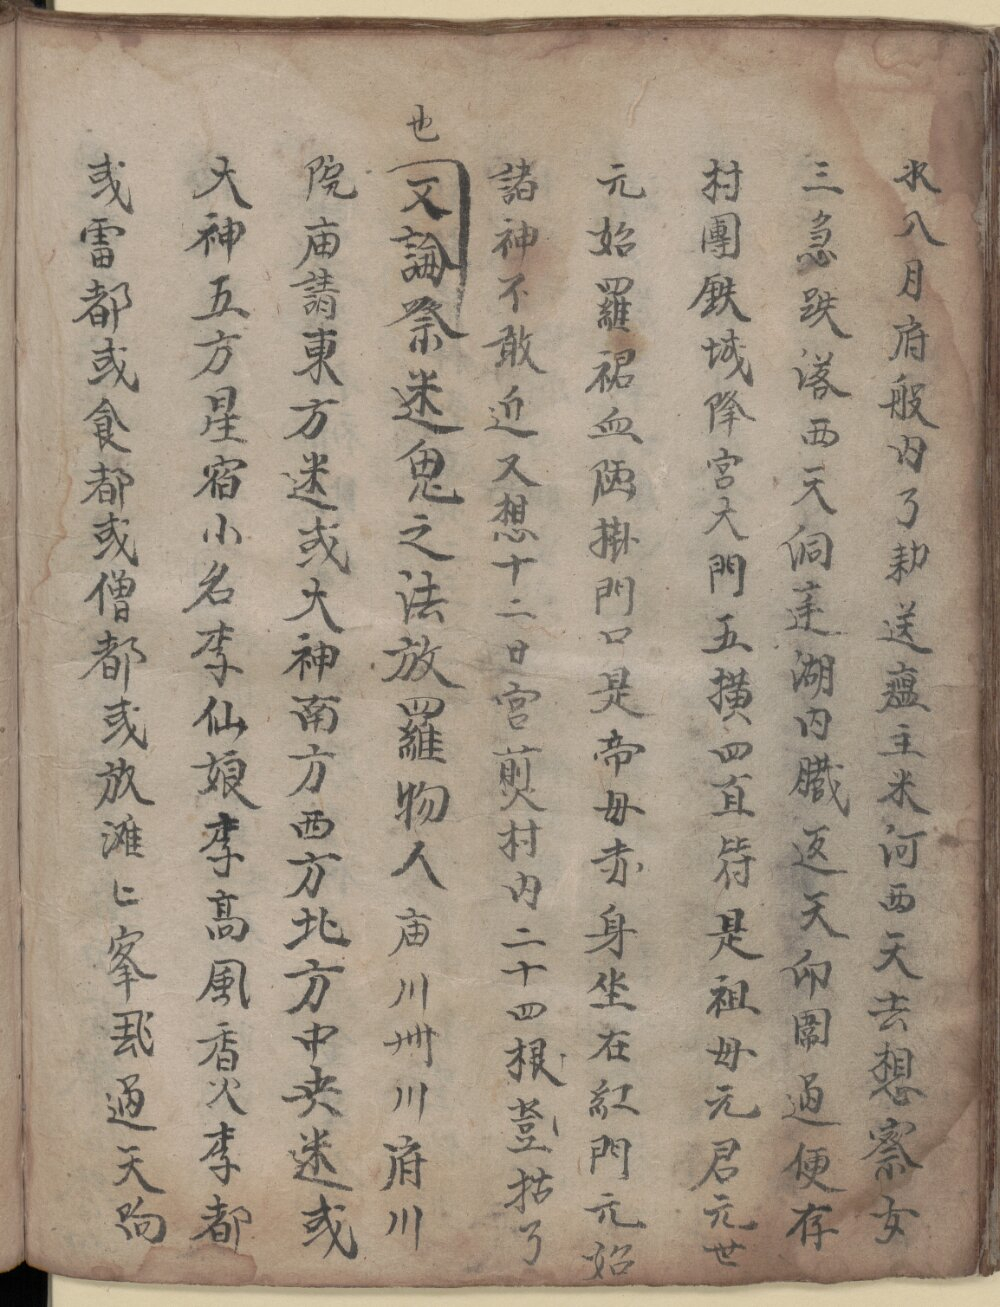 水八月府般内了勅送瘟主米河西天去想察女
三急跌落西天洞達湖内臟返天仰圍過便存
村團鉄城降宮大門五横四直符是祖母元君元世
元始羅裙血掛門口是帝母赤身坐在紅門元始
諸神不敢近又想十二日宮煎村内二十四根括了
也
又論祭迷鬼之法放羅物人庙川州川府川
院庙請東方迷或大神南方西方北方中央迷或
大神五方星宿小名李仙娘李高風香火李都
或雷都或食都或僧都或放滩仁峯過天